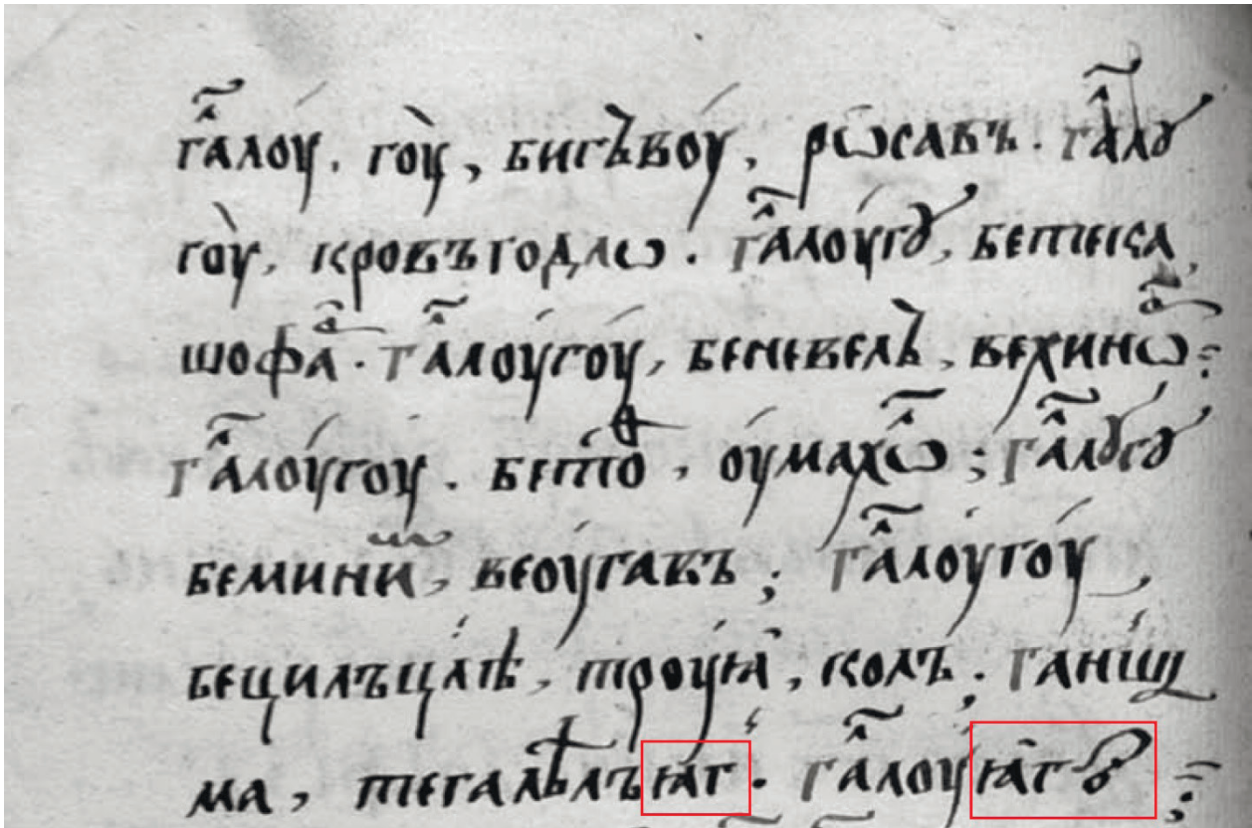 га҃лоу́. гоу̀, бигъ̀воу́, рѡсавъ. га҃лꙋ
гоу̀, кровъгодлѡ. га҃лоу́гꙋ, бетека,
шофа҃. га҃лоу́гоу́, беневелъ̀, вехинѡ҃:
га҃лоу́гоу. бетⷣо, оу́махѡ҃; га҃лꙋгꙋ
беминиⷲ, веоу́гавъ; га҃лоу́гоу́,
бецилъцлѣ, троуꙗ, колъ. ганщ
ма, тегалѣлъꙗг. га҃лоуꙗгꙋ